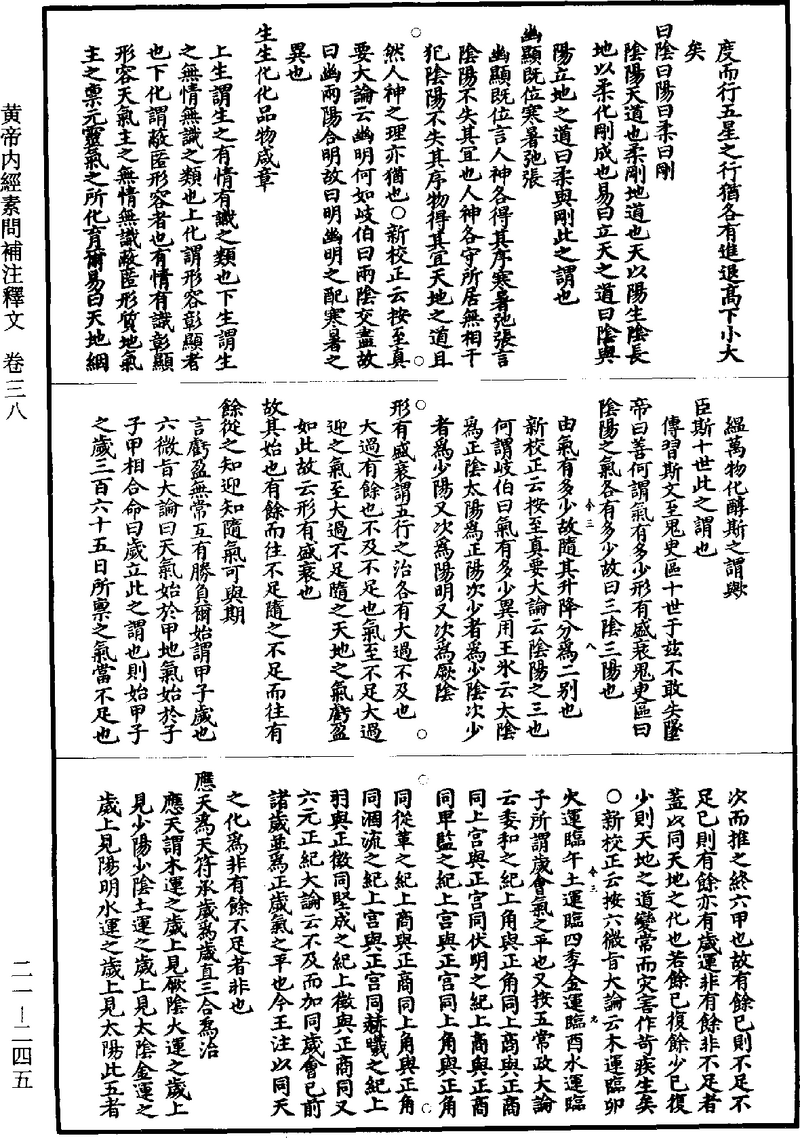 度而行五星之行猶各有進退高下小大
矣
曰陰曰陽曰柔曰剛
陰陽天道也柔剛地道也天以陽生陰長
地以柔化剛成也易曰立天之道曰陰與
陽立地之道曰柔與剛此之謂也
幽顯既位寒暑弛張
幽顯既位言人神各得其序寒暑弛張言
陰陽不失其宜也人神各守所居無相干
犯陰陽不失其序物得其宜天地之道且
然人神之理亦猶也○新校正云按至真
要大論云幽明何如岐伯曰兩陰交盡故
曰幽兩陽合明故曰明幽明之配寒暑之
異也
生生化化品物咸章
上生謂生之有情有識之類也下生謂生
之無情無識之類也上化謂形容彰顯者
也下化謂蔽匿形容者也有情有識彰顯
形容天氣主之無情無識蔽匿形質地氣
主之稟元靈氣之所化育爾易曰天地絪
縕萬物化醇斯之謂歟
臣斯十世此之謂也
傳習斯文至鬼臾區十世于茲不敢失墜
帝曰善何謂氣有多少形有盛衰鬼臾區曰
陰陽之氣各有多少故曰三陰三陽也
由氣有多少故隨其升降分為三別也
新校正云按至真要大論云陰陽之三也
何謂岐伯曰氣有多少異用王冰云太陰
為正陰太陽為正陽次少者為少陰次少
者為少陽又次為陽明又次為厥陰
形有盛衰謂五行之治各有太過不及也
太過有餘也不及不足也氣至不足太過
迎之氣至太過不足隨之天地之氣虧盈
如此故云形有盛衰也
故其始也有餘而往不足隨之不足而往有
餘從之知迎知隨氣可與期
言虧盈無常互有勝負爾始謂甲子歲也
六微旨大論曰天氣始於甲地氣始於子
子甲相合命曰歲立此之謂也則始甲子
之歲三百六十五日所稟之氣當不足也
次而推之終六甲也故有餘已則不足不
足已則有餘亦有歲運非有餘非不足者
蓋以同天地之化也若餘已復餘少已復
少則天地之道變常而災害作苛疾生矣
○新校正云按六微旨大論云木運臨卯
火運臨午土運臨四季金運臨酉水運臨
子所謂歲會氣之平也又按五常政大論
云委和之紀上角與正角同上商與正商
同上宮與正宮同伏明之紀上商與正商
同卑監之紀上宮與正宮同上角與正角
同從革之紀上商與正商同上角與正角
同涸流之紀上宮與正宮同赫曦之紀上
羽與正徵同堅成之紀上徵與正商同又
六元正紀大論云不及而加同歲會已前
諸歲並為正歲氣之平也今王注以同天
之化為非有餘不足者非也
應天為天符承歲為歲直三合為治
應天謂木運之歲上見厥陰火運之歲上
見少陽少陰土運之歲上見太陰金運之
歲上見陽明水運之歲上見太陽此五者
黄帝内經素問補注釋文 卷三八
二一—二四五